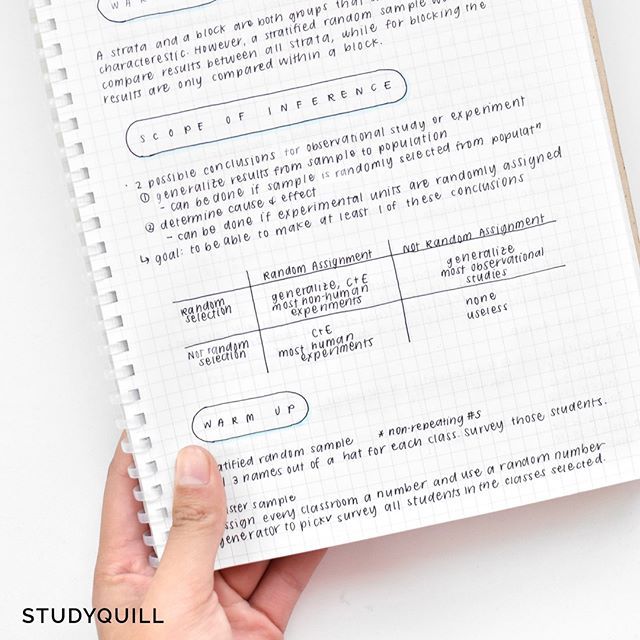 A strata and a block are both groups that
characterestic. However, a stratified random sample
compare results between all strata, while for blocking the
results are only compared within a block.
SCOPE OF INFERENCE
· 2 possible conclusions for observational study or experiment
① generalize results from sample to population
- can be done if sample is randomly selected from populatn
② determine cause & effect
- can be done if experimental units are randomly assigned
↳ goal: to be able to make at least 1 of these conclusions
Random Assignment
Not Random Assignment
Random
selection
generalize, C+E
most non-human
experiments
generalize
most observational
studies
Not random
selection
C+E
most human
experiments
none
useless
WARM UP
atified random sample * non-repeating #s
3 names out of a hat for each class. Survey those students.
ster sample
ssign every classroom a number and use a random number
generator to pick✓ survey all students in the classes selected.
STUDYQUILL